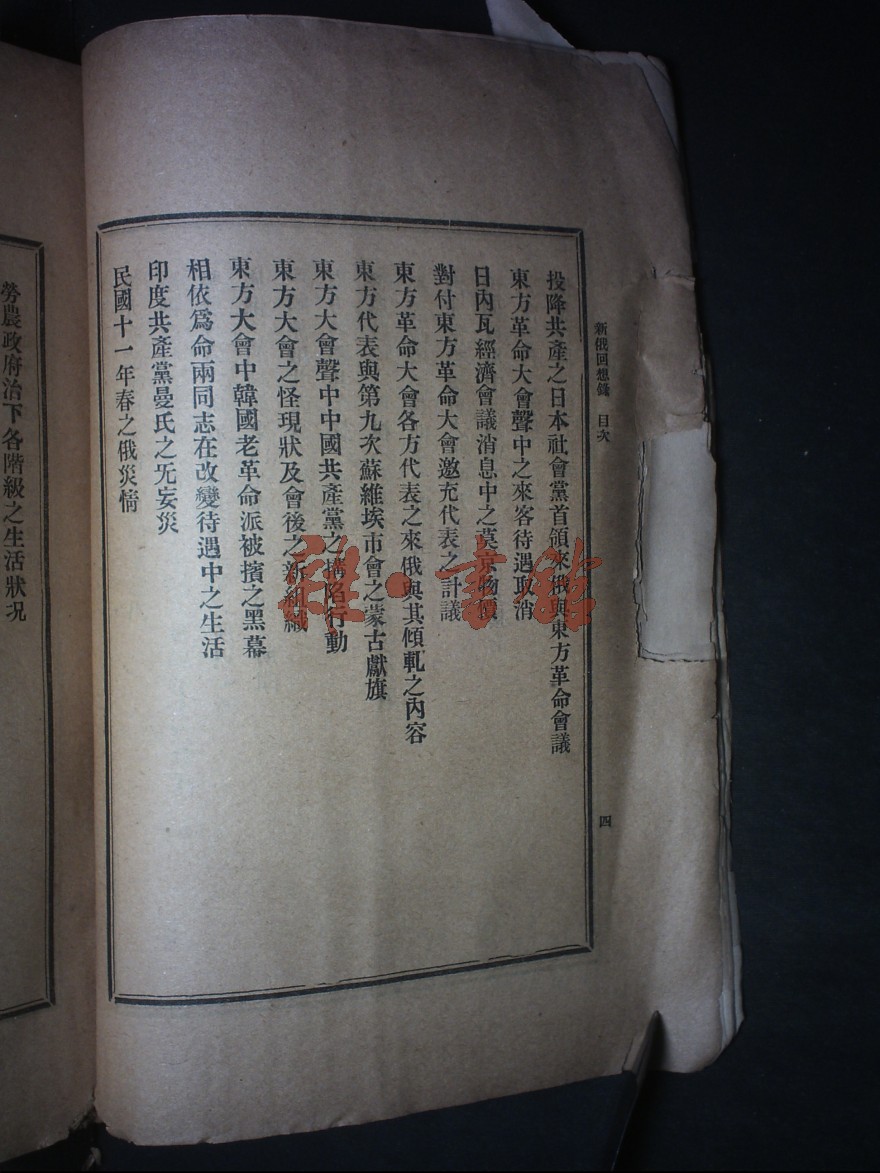 新俄回想錄 目次
四
投降共產之日本社會黨首領來俄與東方革命會議
東方革命大會聲中之來客待遇取消
日內瓦經濟會議消息中之莫京物價
對付東方革命大會邀充代表之計議
東方革命大會各方代表之來俄與其傾軋之內容
東方代表與第九次蘇維埃市會之蒙古獻旗
東方大會聲中中國共產黨之搆陷行動
東方大會之怪現狀及會後之新組織
東方大會中韓國老革命派被擯之黑幕
相依爲命兩同志在改變待遇中之生活
印度共產黨曼氏之旡妄災
民國十一年春之俄災情
勞農政府治下各階級之生活狀況
雅·書館